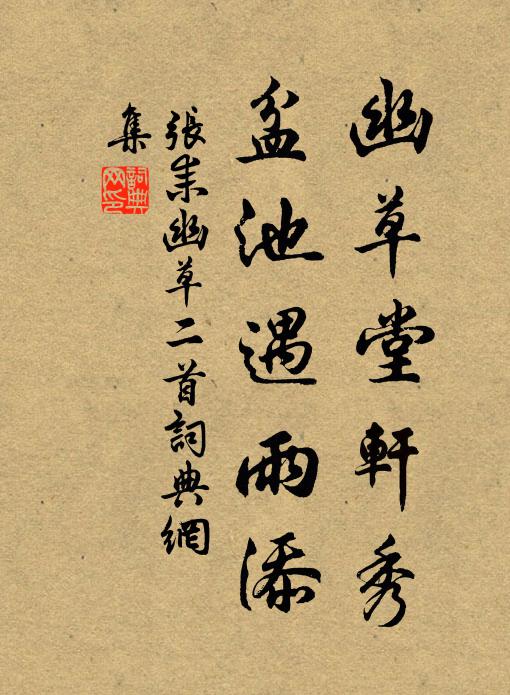 幽草堂軒秀
盆池遇雨添
張耒幽草二首詞典網
集
詞典
网印